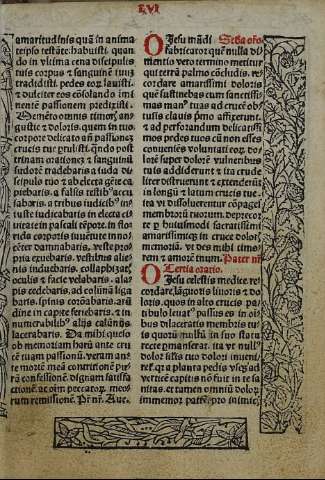 LVI
amaritudinis quā in anima
teipso testāte: habuisti. quan
do in vltima cena discipulis
tuis corpus ⁊ sanguinē tuum
tradidisti. pedes eoꝝ lauisti.
⁊ dulciter eos cōsolādo imi
nentē passionem predixisti.
Memēto omnis timoꝝ an
gustie ⁊ doloris. quem in tuo
corpore delicato añ passionē
crucis tue ꝑtulisti. qn̄do post
trinam orationez ⁊ sanguinū
sudorē tradebaris. a iuda di
scipulo tuo ⁊ ab electa gēte ca
piebaris. a falsis testibꝰ accu
sabaris. a tribus iudicibꝰ in
iuste iudicabaris in electa ci
uitate in paschali tēpore. in flo
rida corporis iuuētute inno
cēter damnabaris. veste pro
pria exuebaris. vestibus alie
nis induebaris. collaphizatꝰ
oculis ⁊ facie velabaris. ala
pis cedebaris. ad colūnā liga
baris. spinis corōabaris. arū
dine in capite feriebaris. ⁊ in
numerabilibꝰ alijs calūnijs
lacerabaris. Da mihi queso
ob memoriam horū ante cru
cē tuam passionū. veram an
te mortē meā contritionē pu
rā confessionē. dignam satisfa
ctionē. ac oīm peccatoꝝ meo
rum remissionē. Pr̄ nr̄. Aue.
O Jesu mūdi Scḋa or̄o.
fabricator quē nulla di
mentio vero termino metitur
qui terrā palmo cōcludis. re
cordare amarissimi doloris
quē sustinebas cum sanctissi
mas manꝰ tuas ad crucē ob
tusis clauis primo affigerent.
⁊ ad perforandum delicatissi
mos pedes tuos cū non esses
conueniēs voluntati eoꝝ. do
lorē super dolorē vulneribus
tuis addiderunt ⁊ ita crude
liter distraxerunt ⁊ extenderūt
in longū ⁊ latum crucis tue.
ita vt dissoluerentur cōpages
membrorū tuorum. deprecor
te ꝑ huiusmodi sacratissimi
amarissimeqꝫ in cruce doloris
memoriā. vt des mihi timo
rem ⁊ amorē tuum. Pater nr̄
O Tertia oratio.
Jesu celestis medice. re
cordare lāguoris liuoris ⁊ do
loris. quos in alto crucis pa
tibulo leuatꝰ passus es in oī
bus dilaceratis membris tu
is quorū nullū in suo statu
recte permanserat. ita vt nullꝰ
dolor silis tuo dolori inueni
retur. qꝛ a planta pedis vsqꝫ ad
verticē capitis nō fuit in te sa
nitas. et tamen omniū dolorū
immemor patrē pro inimic.